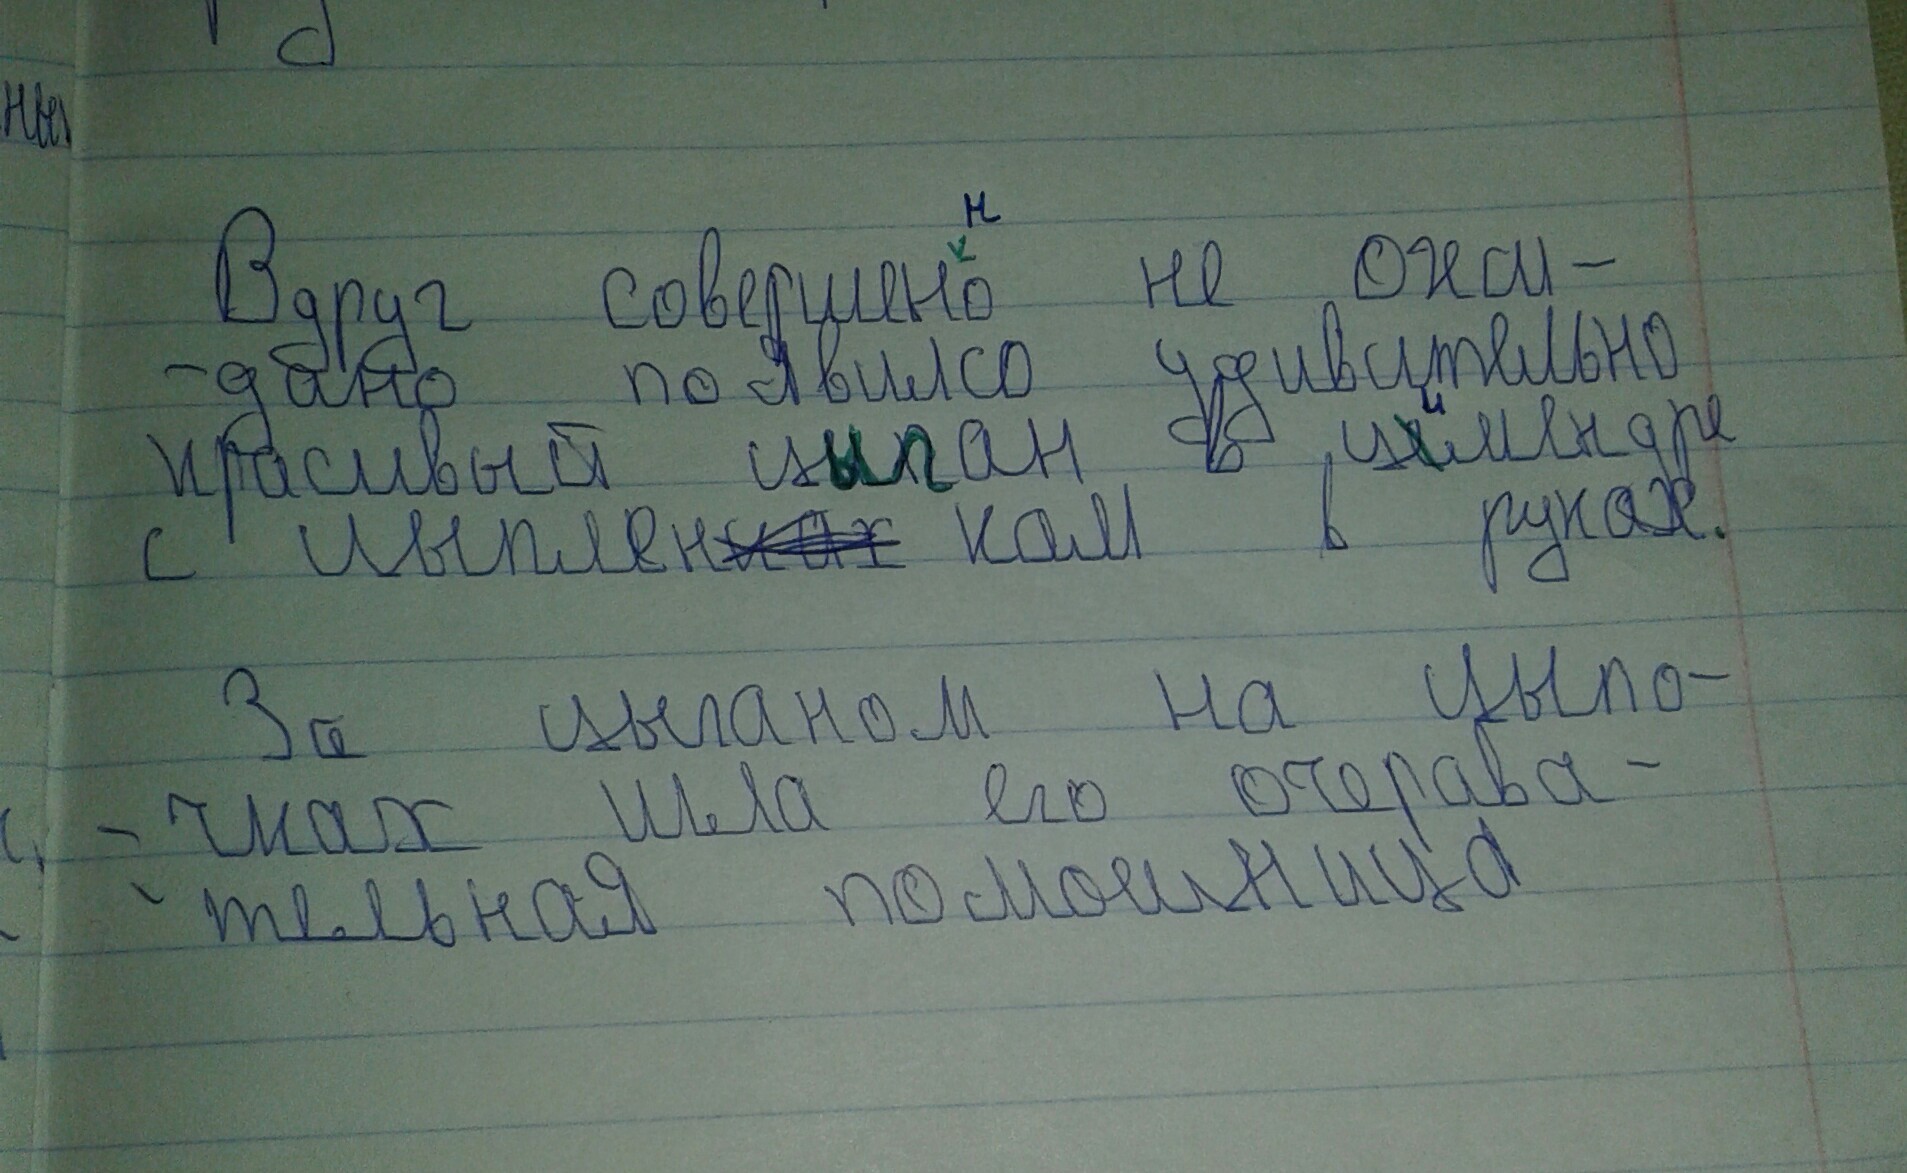 ны
Вдруг совершенно не ожи-
-дано появилсо удивительно
красивый цыган в цилиндре
с цыплен ком в руках.
За цыганом на цыпо-
-чках шла его очерава-
-тельная помошница